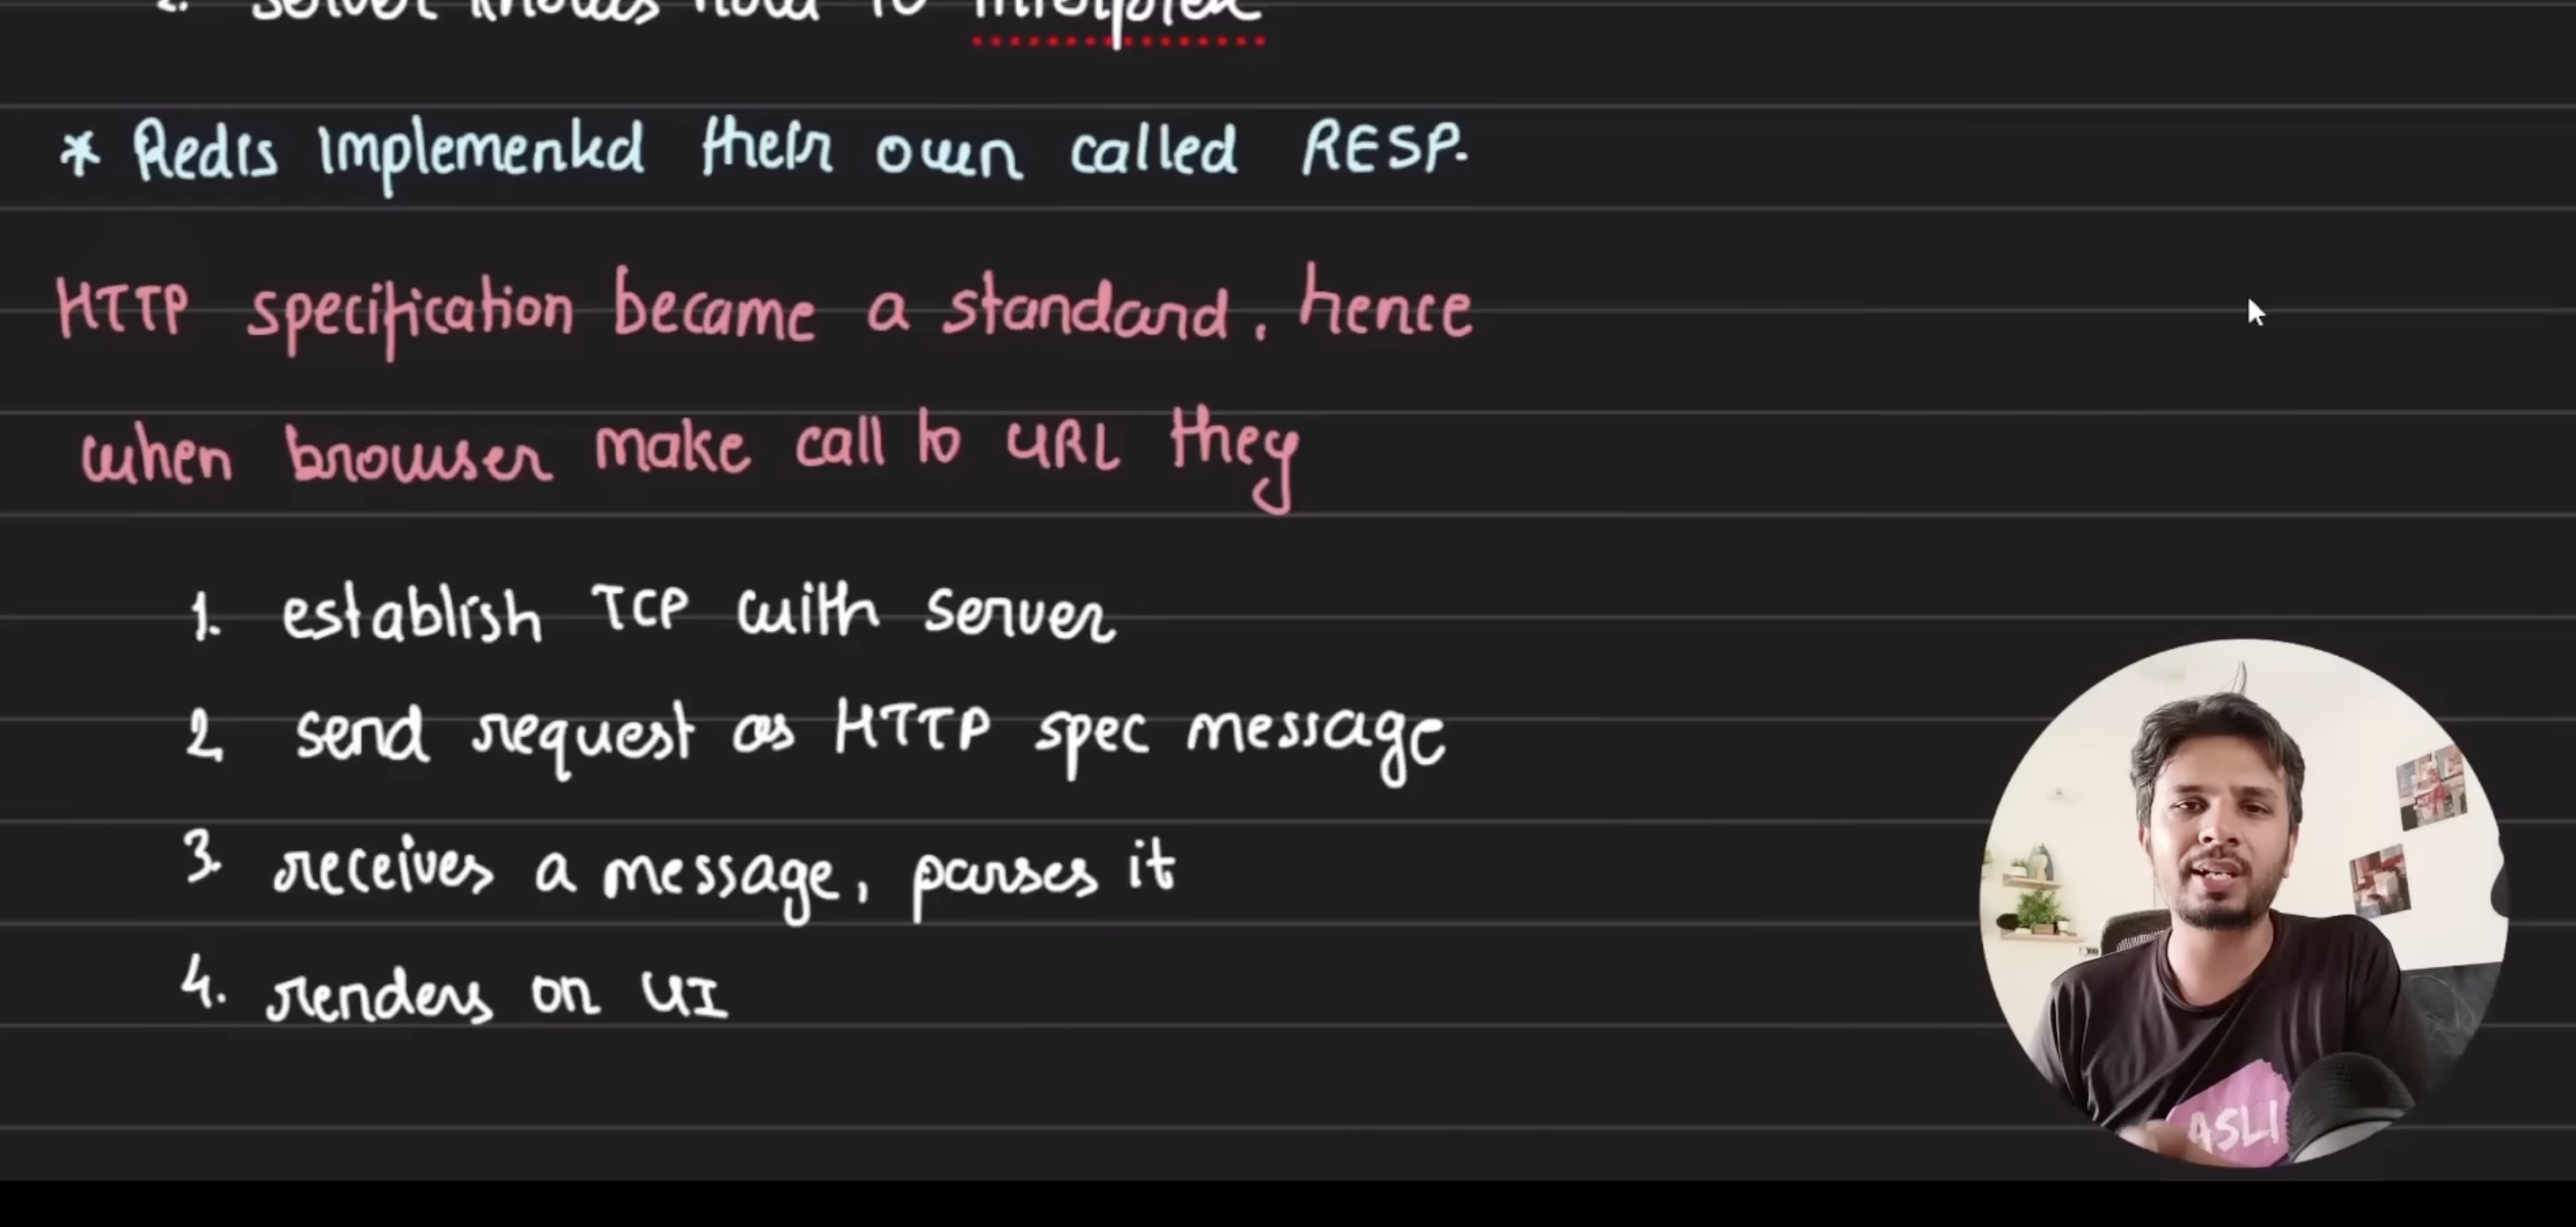 2. server knows how to interpret
* Redis implemented their own called RESP.
HTTP specification became a standard, hence
when browser make call to URL they
1. establish TCP with server
2. send request as HTTP spec message
3. receives a message, parses it
4. renders on UI
ASLI